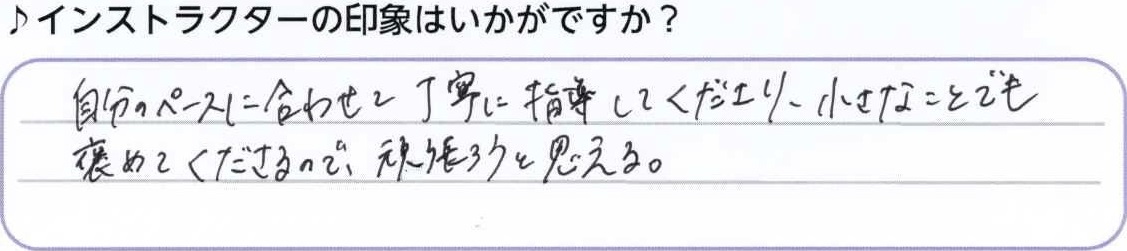 ♪インストラクターの印象はいかがですか？
自分のペースに合わせて丁寧に指導してくださり、小さなことでも
褒めてくださるので、頑張ろうと思える。